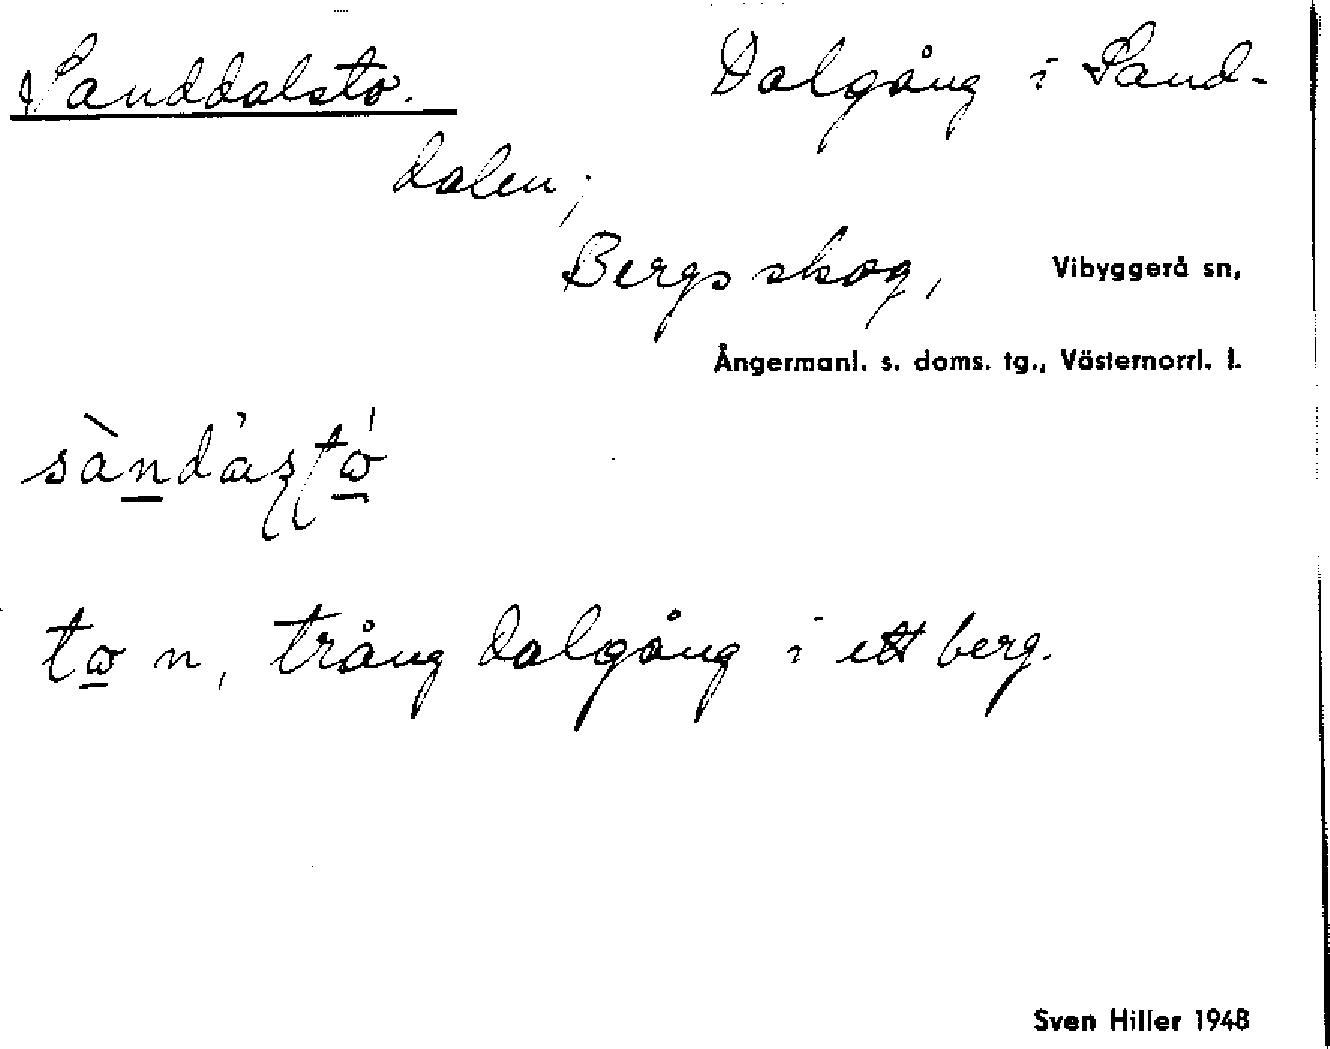 Sanddalsto. Dalgång i Sand-
dalen;
Bergsskog, Vibyggerå sn,
Ångermanl. s. doms. tg., Västernorrl. l.
to n, trång dalgång i ett berg.
Sven Hiller 1948